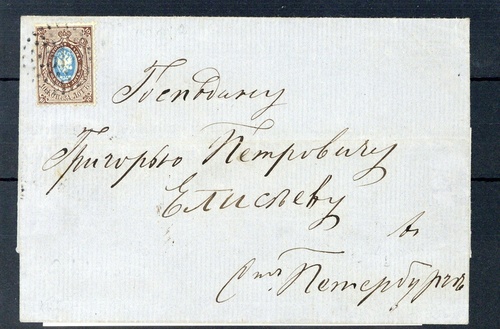 Господину
Григорью Петровичу
Елисѣеву
въ
Санк Петербургъ